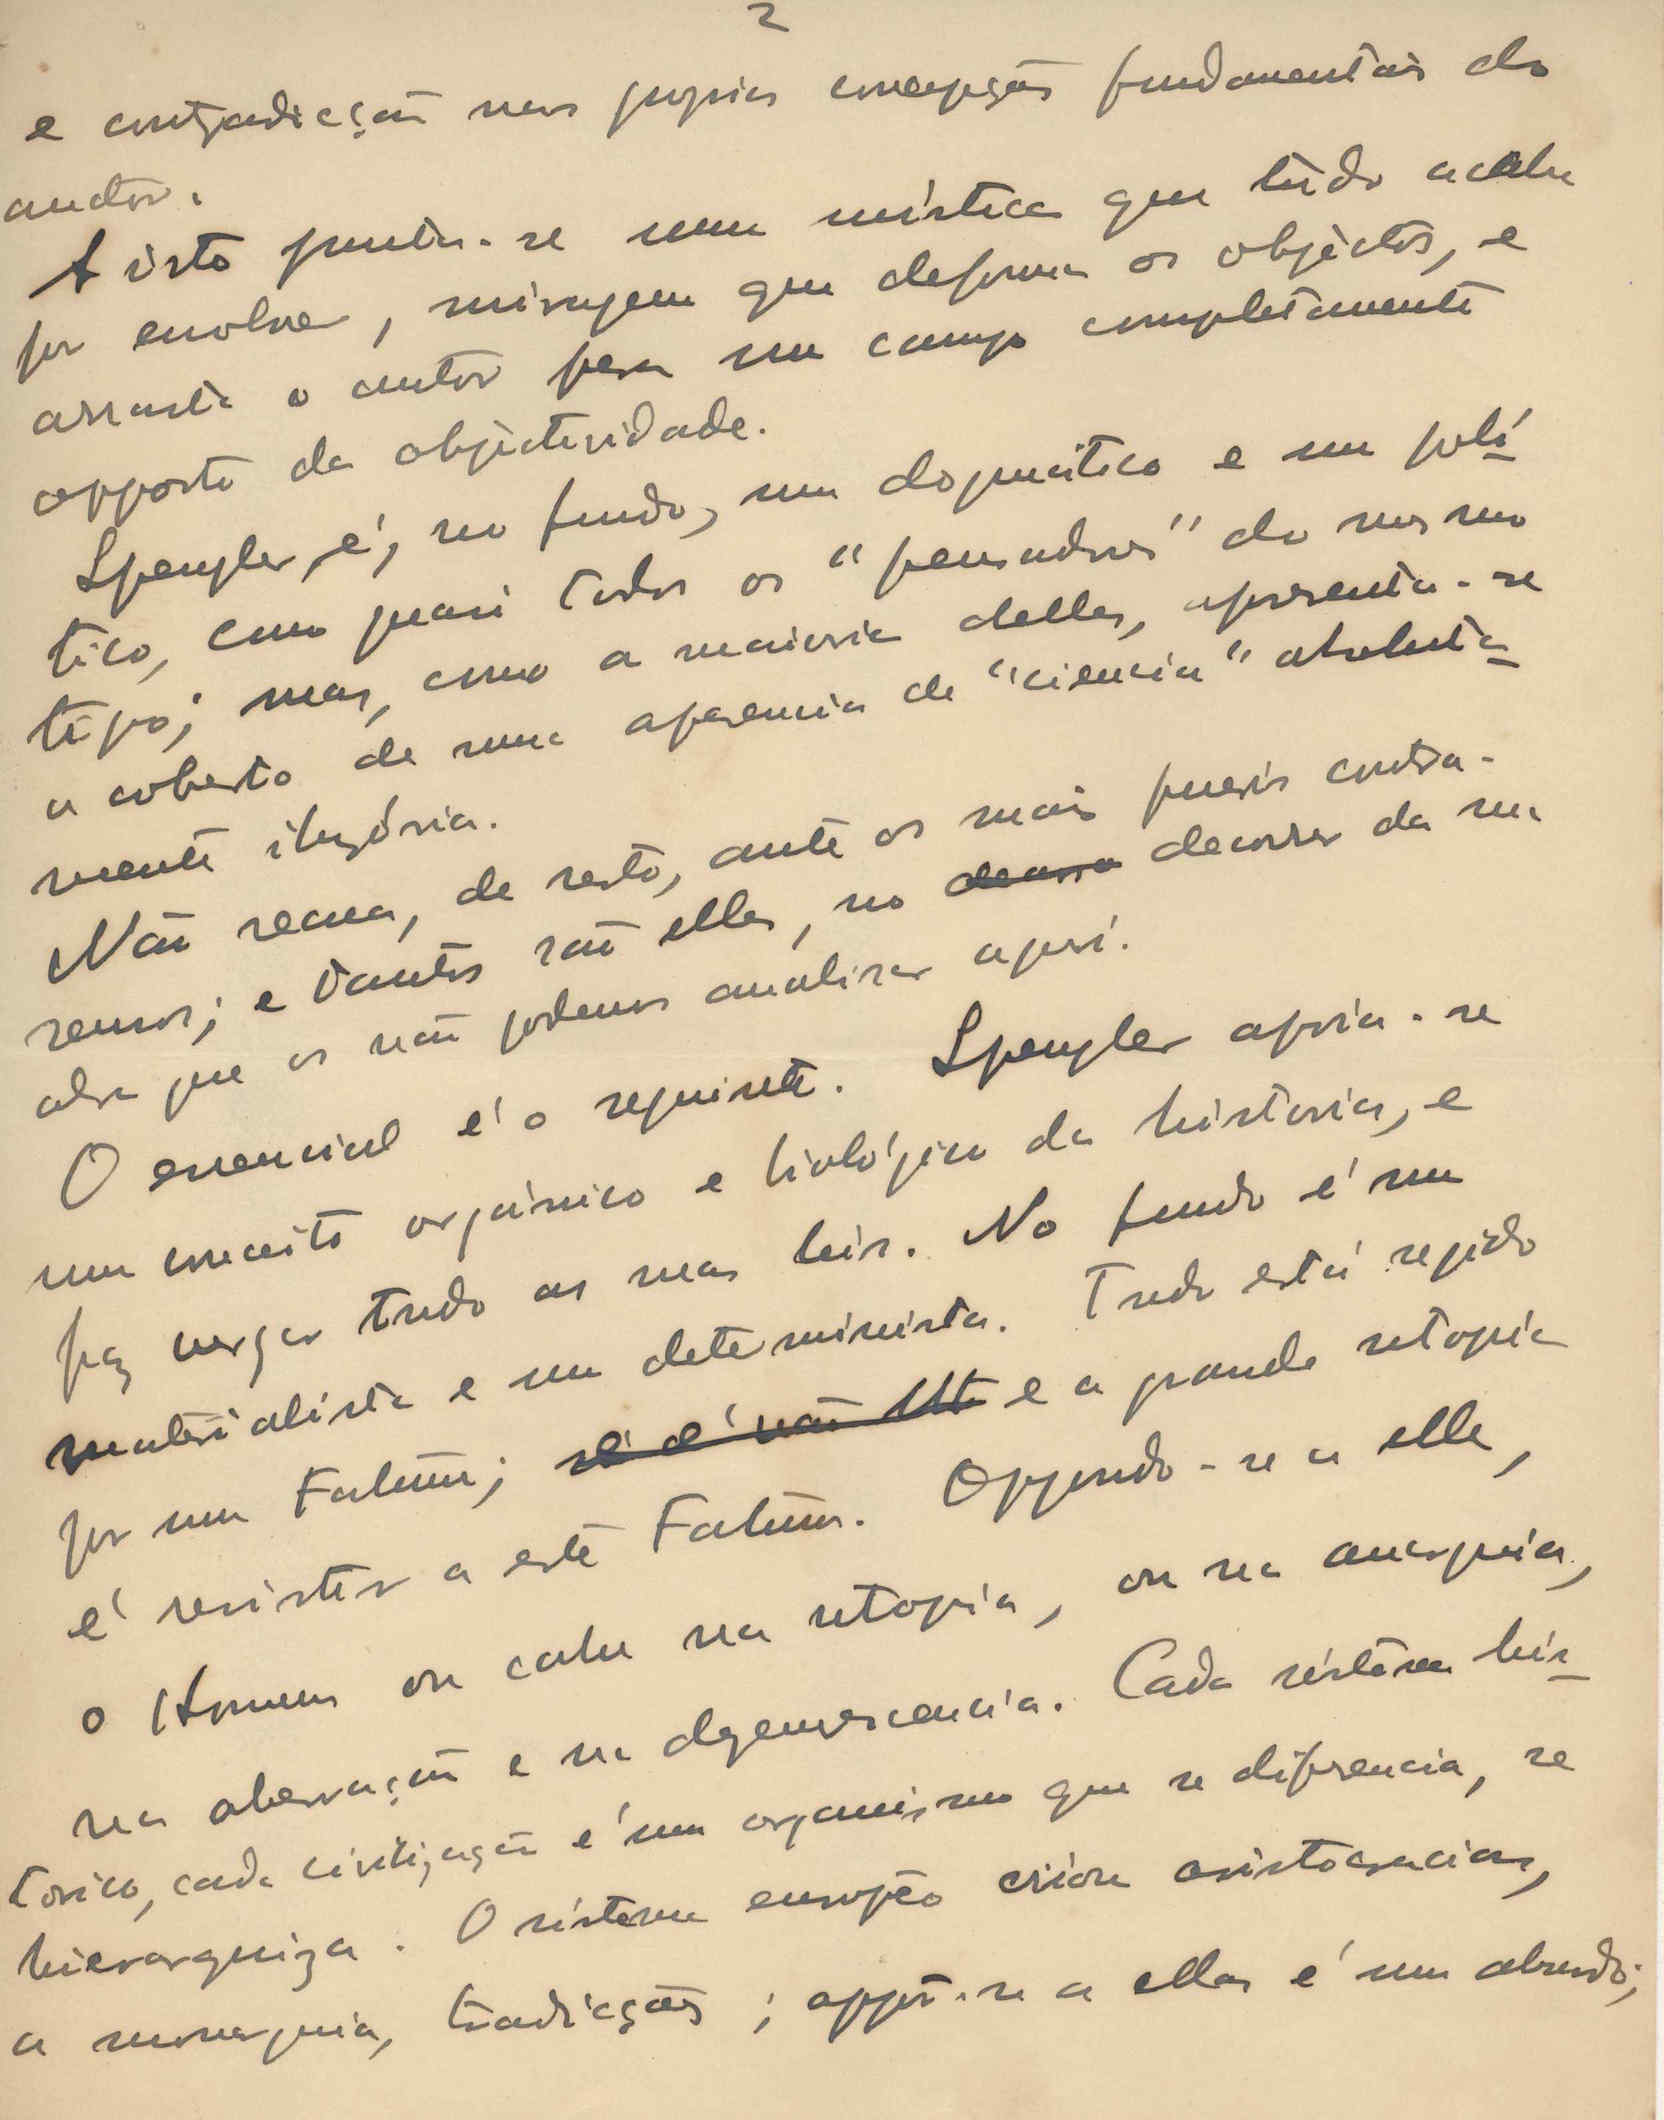 2
e contradicção nas proprias concepções fundamentais do
auctor.
A isto junta-se uma mística que tudo acaba
por envolver, miragem que deforma os objectos, e
arrasta o auctor para um campo completamente
opposto da objectividade.
Spengler é, no fundo, um dogmático e um polí-
tico, como quasi todos os "pensadores" do mesmo
tipo; mas, como a maioria delles, apresenta-se
a coberto de uma aparencia de "ciencia" absoluta-
mente ilusória.
Não recua, de resto, ante os mais pueris contra-
sensos; e tantos são elles, no decorrer da sua
obra que os não podemos analisar aqui.
O essencial é o seguinte. Spengler apoia-se
num conceito orgánico e biológico da historia, e
faz vergar tudo as suas leis. No fundo é um
materialista e um determinista. Tudo está regido
por um Fatum; e a grande utopia
é resistir a este Fatum. Oppondo-se a elle,
o Homem ou cahe na utopia, ou na anarquia,
na aberração e na degenerescencia. Cada sistema his-
torico, cada civilização é um organismo que se diferencia, se
hierarquiza. O sistema europeo criou aristocracias,
a monarquia, tradicções; oppôr-se a ellas é um absurdo;